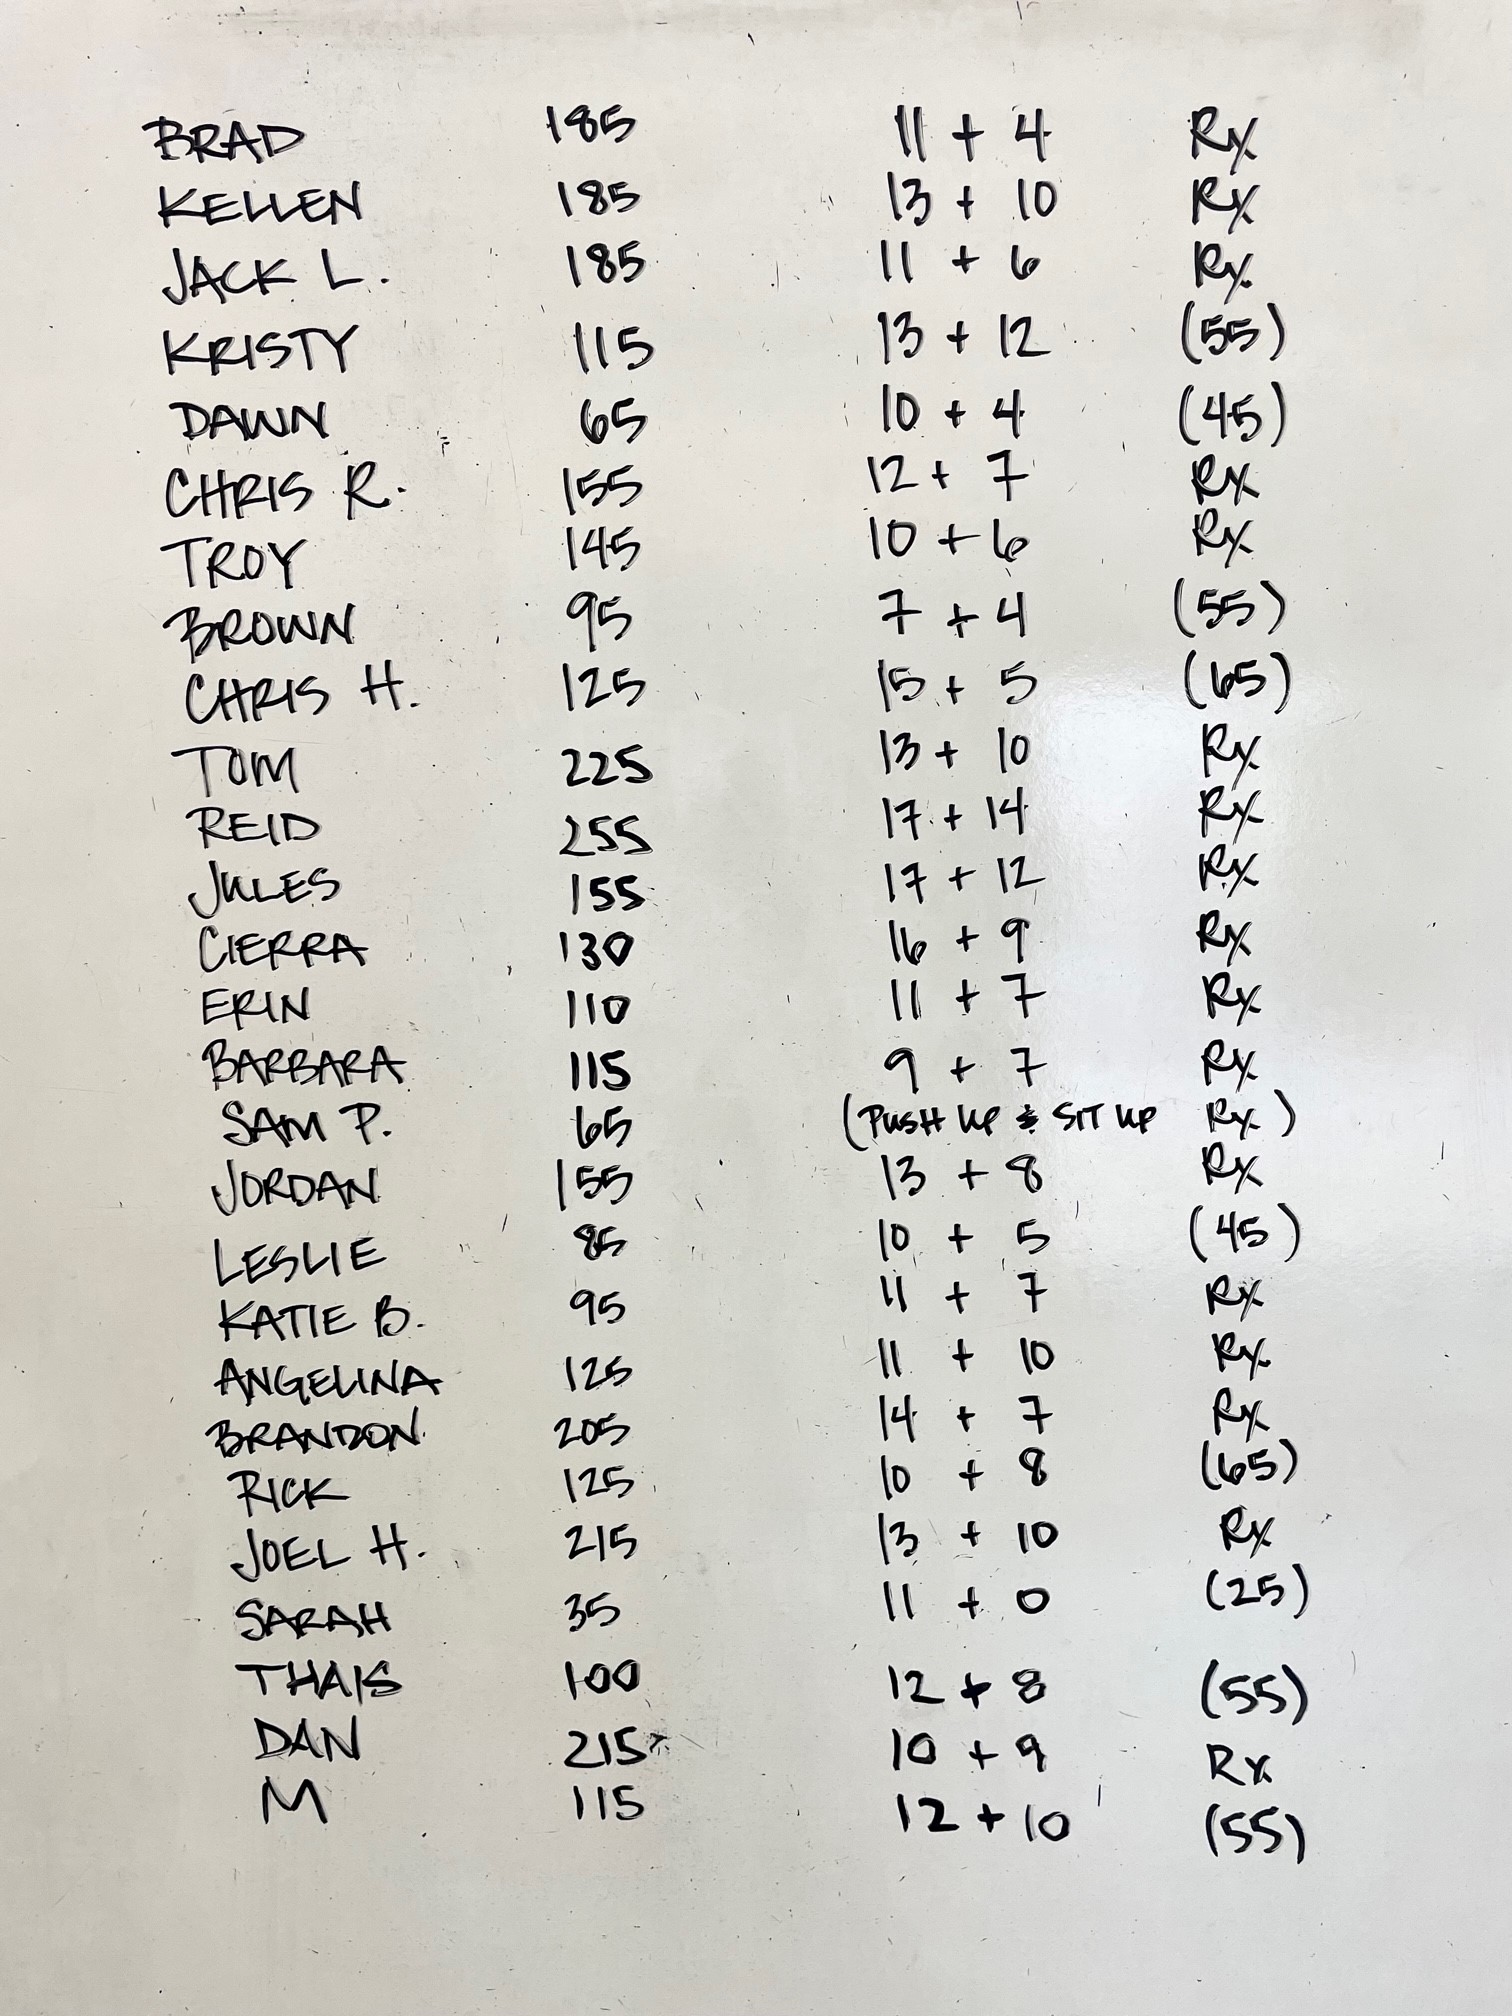 BRAD 185 11 + 4 Rx
KELLEN 185 13 + 10 Rx
JACK L. 185 11 + 6 Rx
KRISTY 115 13 + 12 (55)
DAWN 65 10 + 4 (45)
CHRIS R. 155 12 + 7 Rx
TROY 145 10 + 6 Rx
BROWN 95 7 + 4 (55)
CHRIS H. 125 15 + 5 (65)
TOM 225 13 + 10 Rx
REID 255 17 + 14 Rx
JULES 155 17 + 12 Rx
CIERRA 130 16 + 9 Rx
ERIN 110 11 + 7 Rx
BARBARA 115 9 + 7 Rx
SAM P. 65 (PUSH UP & SIT UP Rx)
JORDAN 155 13 + 8 Rx
LESLIE 85 10 + 5 (45)
KATIE B. 95 11 + 7 Rx
ANGELINA 125 11 + 10 Rx
BRANDON 205 14 + 7 Rx
RICK 125 10 + 8 (65)
JOEL H. 215 13 + 10 Rx
SARAH 35 11 + 0 (25)
THAIS 100 12 + 8 (55)
DAN 215 10 + 9 Rx
M 115 12 + 10 (55)